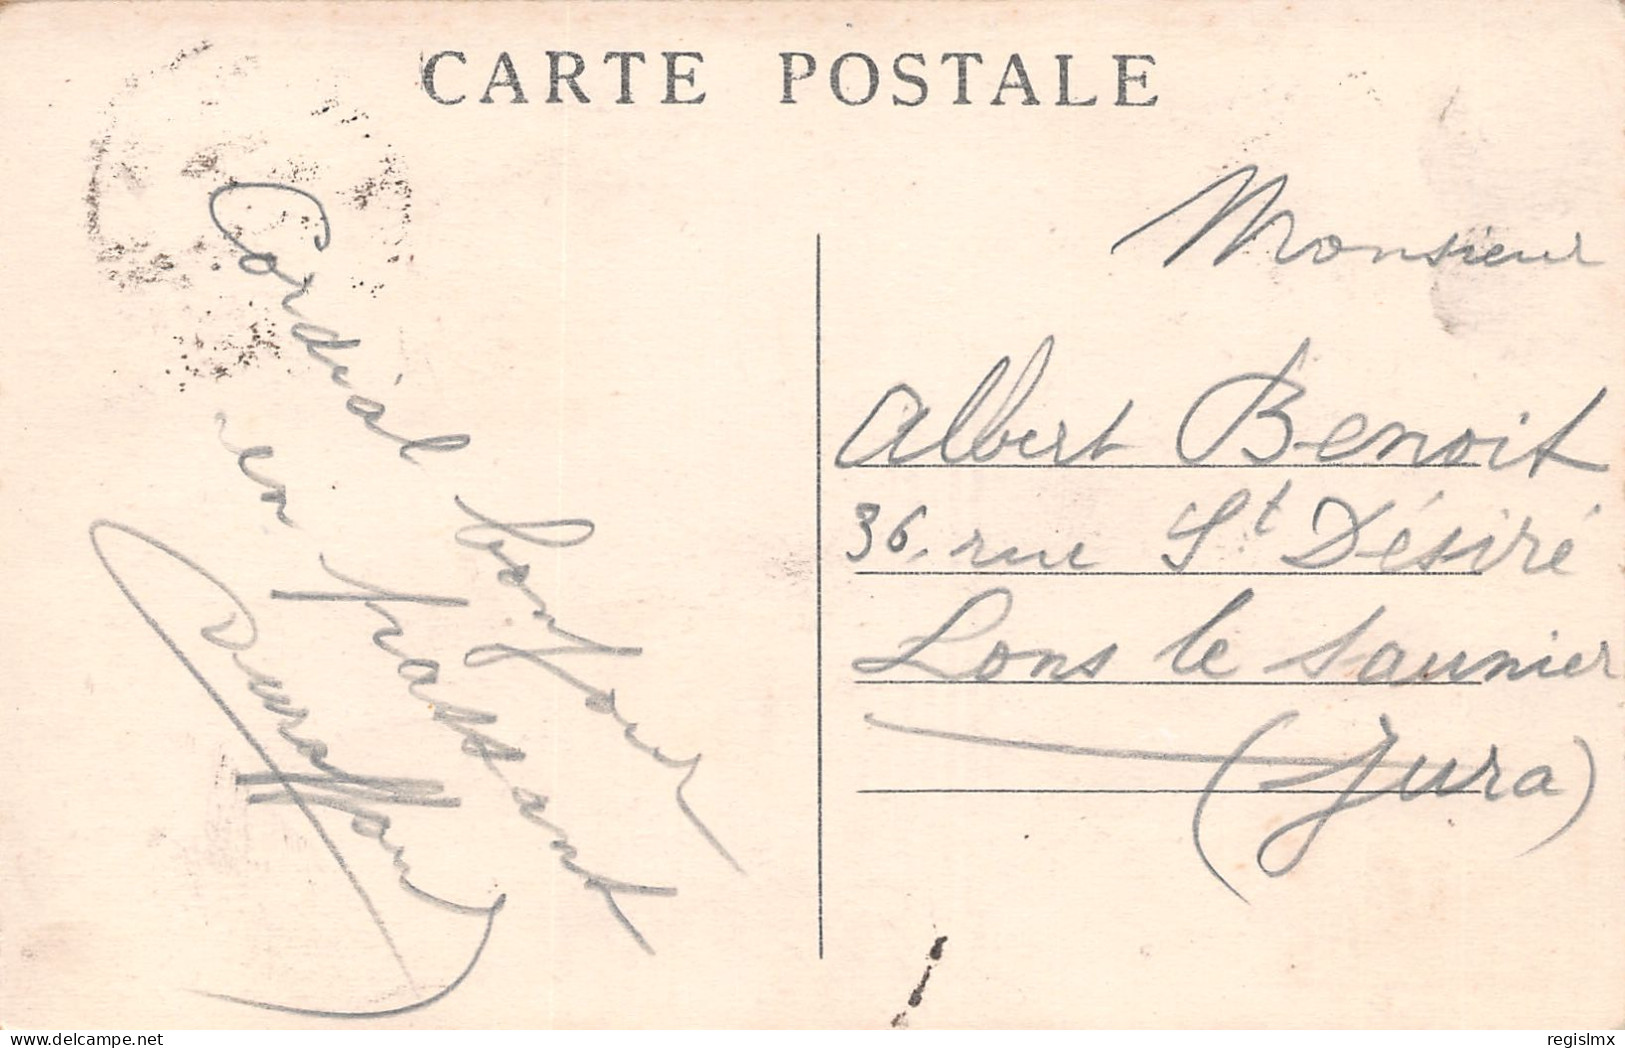 CARTE POSTALE
Cordial bonjour
en passant
Monsieur
Albert Benoit
36, rue St Désiré
Lons le Saunier
(Jura)
delcampe.net
regislmx